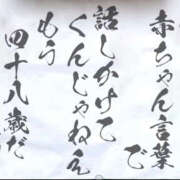 赤ちゃん言葉で
話しかけて
くんじゃねえ
もう
四十八歳だ